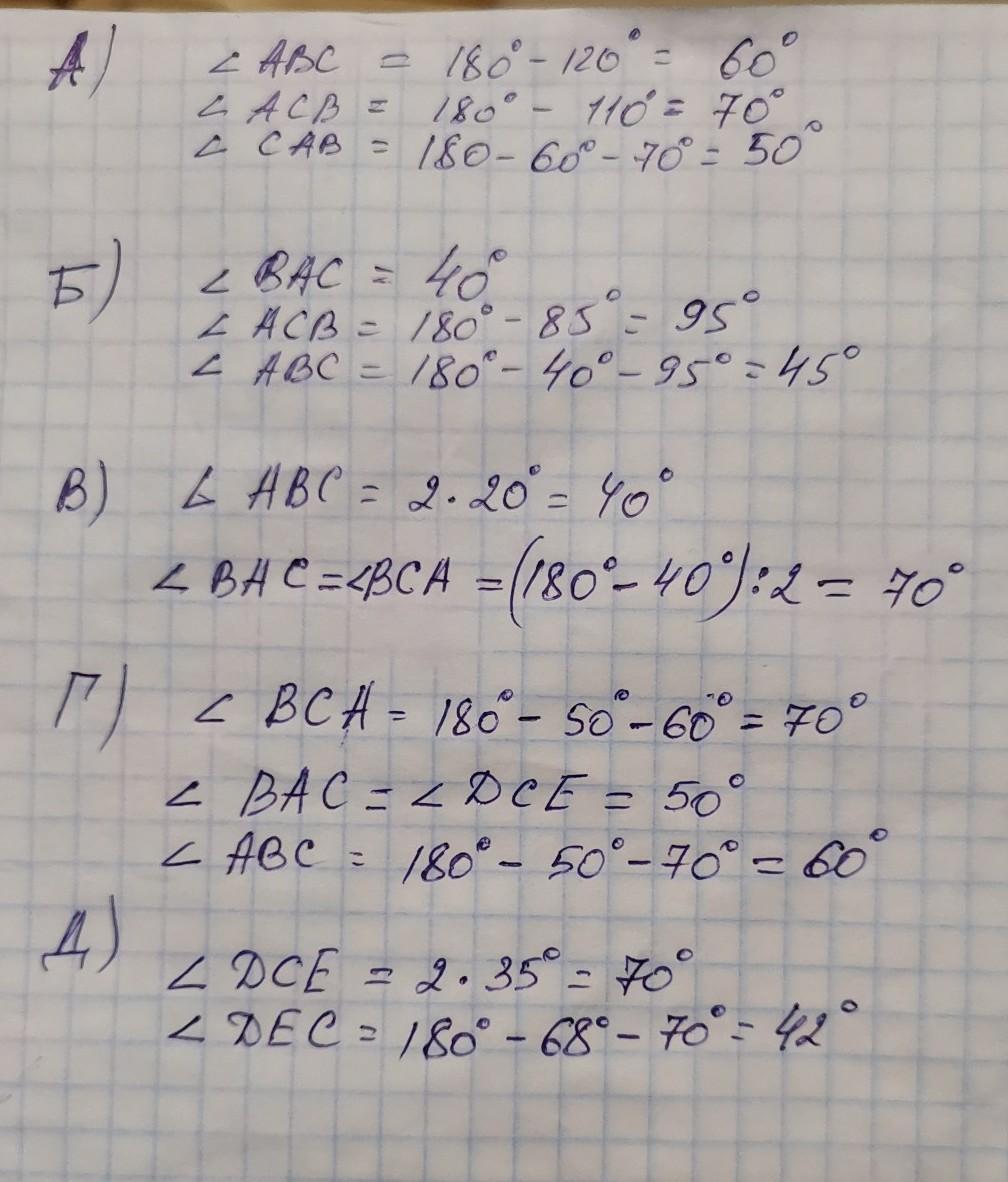 А) ∠ ABC = 180° - 120° = 60°
∠ ACB = 180° - 110° = 70°
∠ CAB = 180 - 60° - 70° = 50°
Б) ∠ BAC = 40°
∠ ACB = 180° - 85° = 95°
∠ ABC = 180° - 40° - 95° = 45°
В) ∠ ABC = 2 · 20° = 40°
∠ BAC = ∠BCA = (180° - 40°) : 2 = 70°
Г) ∠ BCA = 180° - 50° - 60° = 70°
∠ BAC = ∠ DCE = 50°
∠ ABC = 180° - 50° - 70° = 60°
Д)
∠ DCE = 2 · 35° = 70°
∠ DEC = 180° - 68° - 70° = 42°